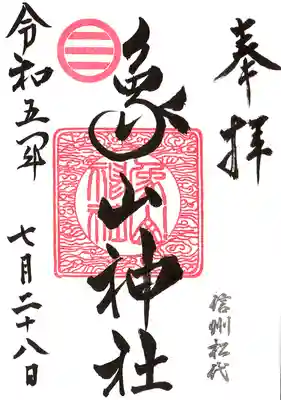 奉拝
信州松代
象山神社
令和五年 七月二十八日